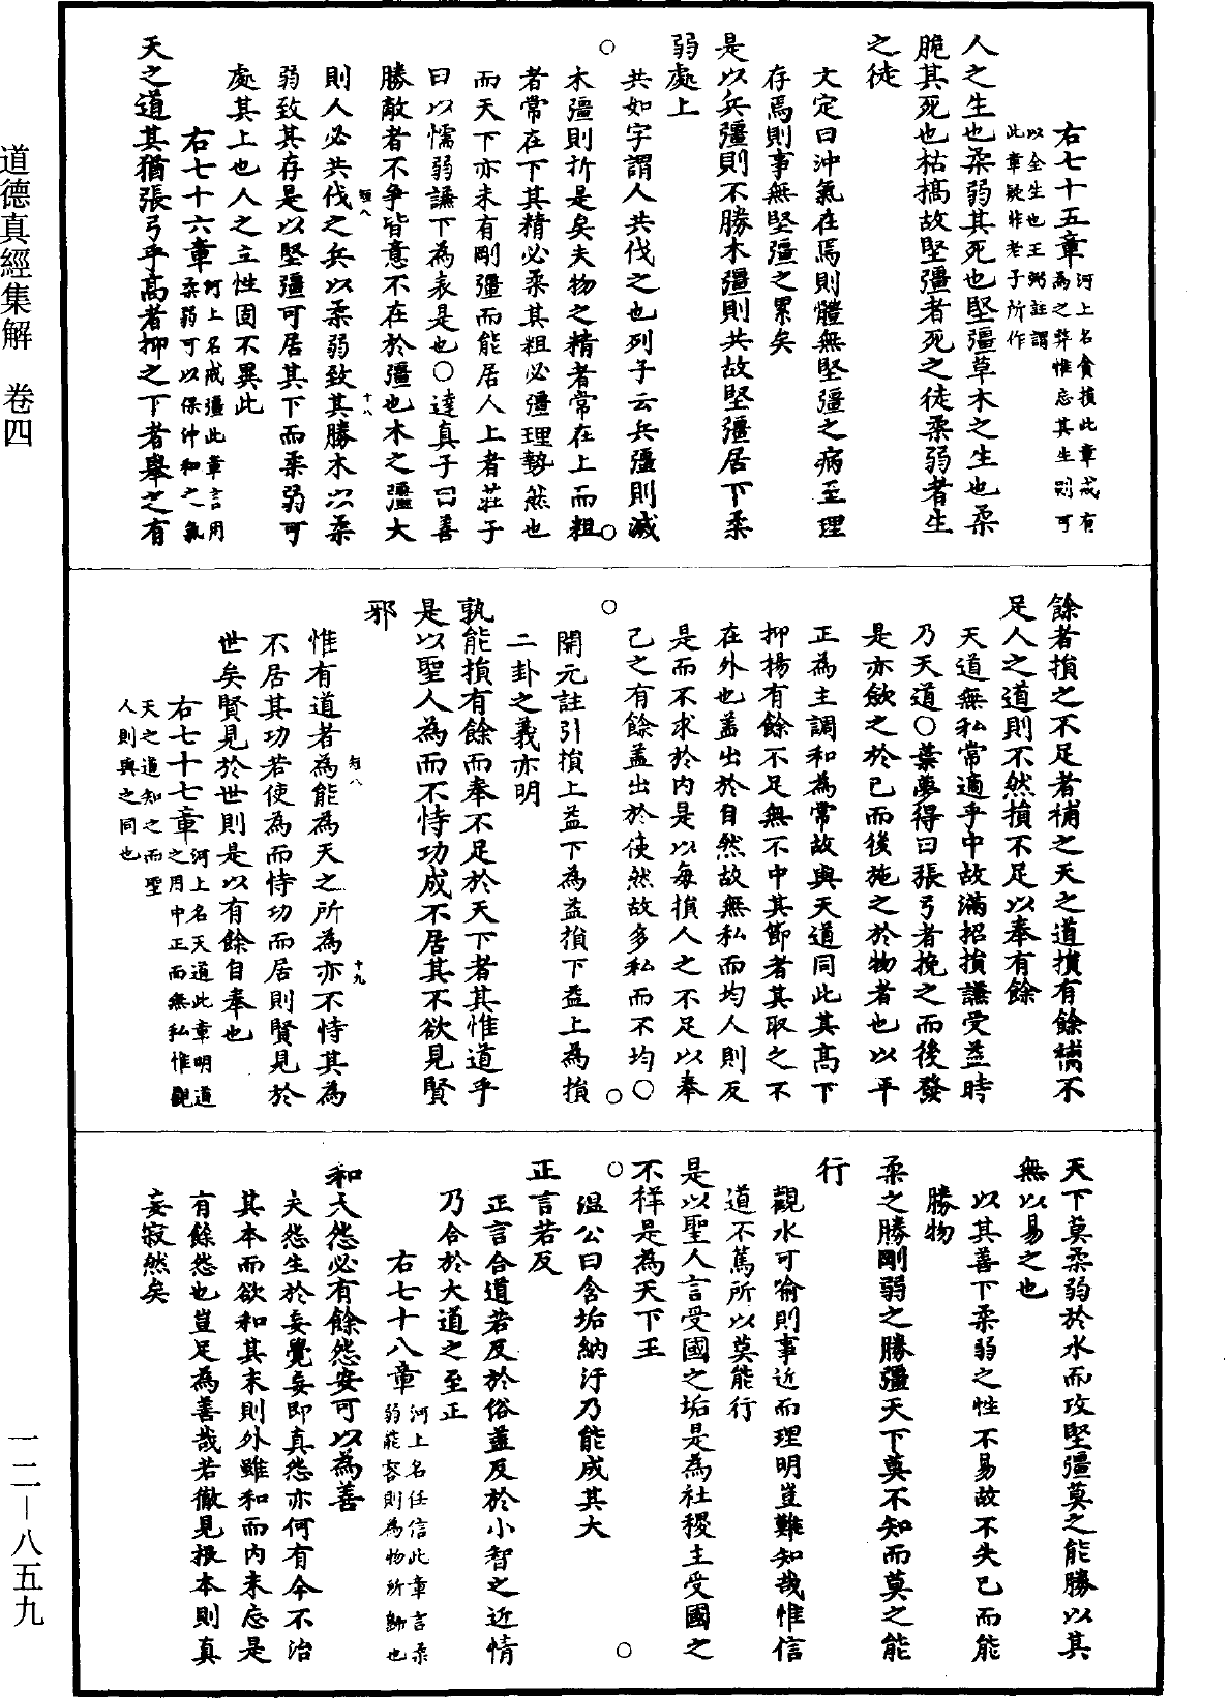 右七十五章河上名貪損此章戒有
為之弊惟忘其生則可
以全生也王弼註謂
此章疑非老子所作
人之生也柔弱其死也堅彊草木之生也柔
脆其死也枯槁故堅彊者死之徒柔弱者生
之徒
文定曰沖氣在焉則體無堅彊之病至理
存焉則事無堅彊之累矣
是以兵彊則不勝木彊則共故堅彊居下柔
弱處上
共如字謂人共伐之也列子云兵彊則滅
木彊則折是矣夫物之精者常在上而粗
者常在下其精必柔其粗必彊理勢然也
而天下亦未有剛彊而能居人上者莊子
曰以懦弱謙下為表是也○達真子曰善
勝敵者不爭皆意不在於彊也木之彊大
則人必共伐之兵以柔弱致其勝木以柔
弱致其存是以堅彊可居其下而柔弱可
處其上也人之立性固不異此
右七十六章河上名戒彊此章言用
柔弱可以保沖和之氣
天之道其猶張弓乎高者抑之下者舉之有
餘者損之不足者補之天之道損有餘補不
足人之道則不然損不足以奉有餘
天道無私常適乎中故滿招損謙受益時
乃天道○葉夢得曰張弓者挽之而後發
是亦斂之於已而後施之於物者也以平
正為主調和為常故與天道同此其高下
抑揚有餘不足無不中其節者其取之不
在外也蓋出於自然故無私而均人則反
是而不求於内是以每損人之不足以奉
己之有餘蓋出於使然故多私而不均○
開元註引損上益下為益損下益上為損
二卦之義亦明
孰能損有餘而奉不足於天下者其惟道乎
是以聖人為而不恃功成不居其不欲見賢
邪
惟有道者為能為天之所為亦不恃其為
不居其功若使為而恃功而居則賢見於
世矣賢見於世則是以有餘自奉也
右七十七章河上名天道此章明道
之用中正而無私惟觀
天之道知之而聖
人則與之同也
天下莫柔弱於水而攻堅彊莫之能勝以其
無以易之也
以其善下柔弱之性不易故不失己而能
勝物
柔之勝剛弱之勝彊天下莫不知而莫之能
行
觀水可喻則事近而理明豈難知哉惟信
道不篤所以莫能行
是以聖人言受國之垢是為社稷主受國之
不祥是為天下王
溫公曰含垢納汙乃能成其大
正言若反
正言合道若反於俗蓋反於小智之近情
乃合於大道之至正
右七十八章河上名任信此章言柔
弱能容則為物所歸也
和大怨必有餘怨安可以為善
夫怨生於妄覺妄即真怨亦何有今不治
其本而欲和其末則外雖和而内未忘是
有餘怨也豈足為善哉若徹見根本則真
妄寂然矣
道德真經集解 卷四
一二—八五九